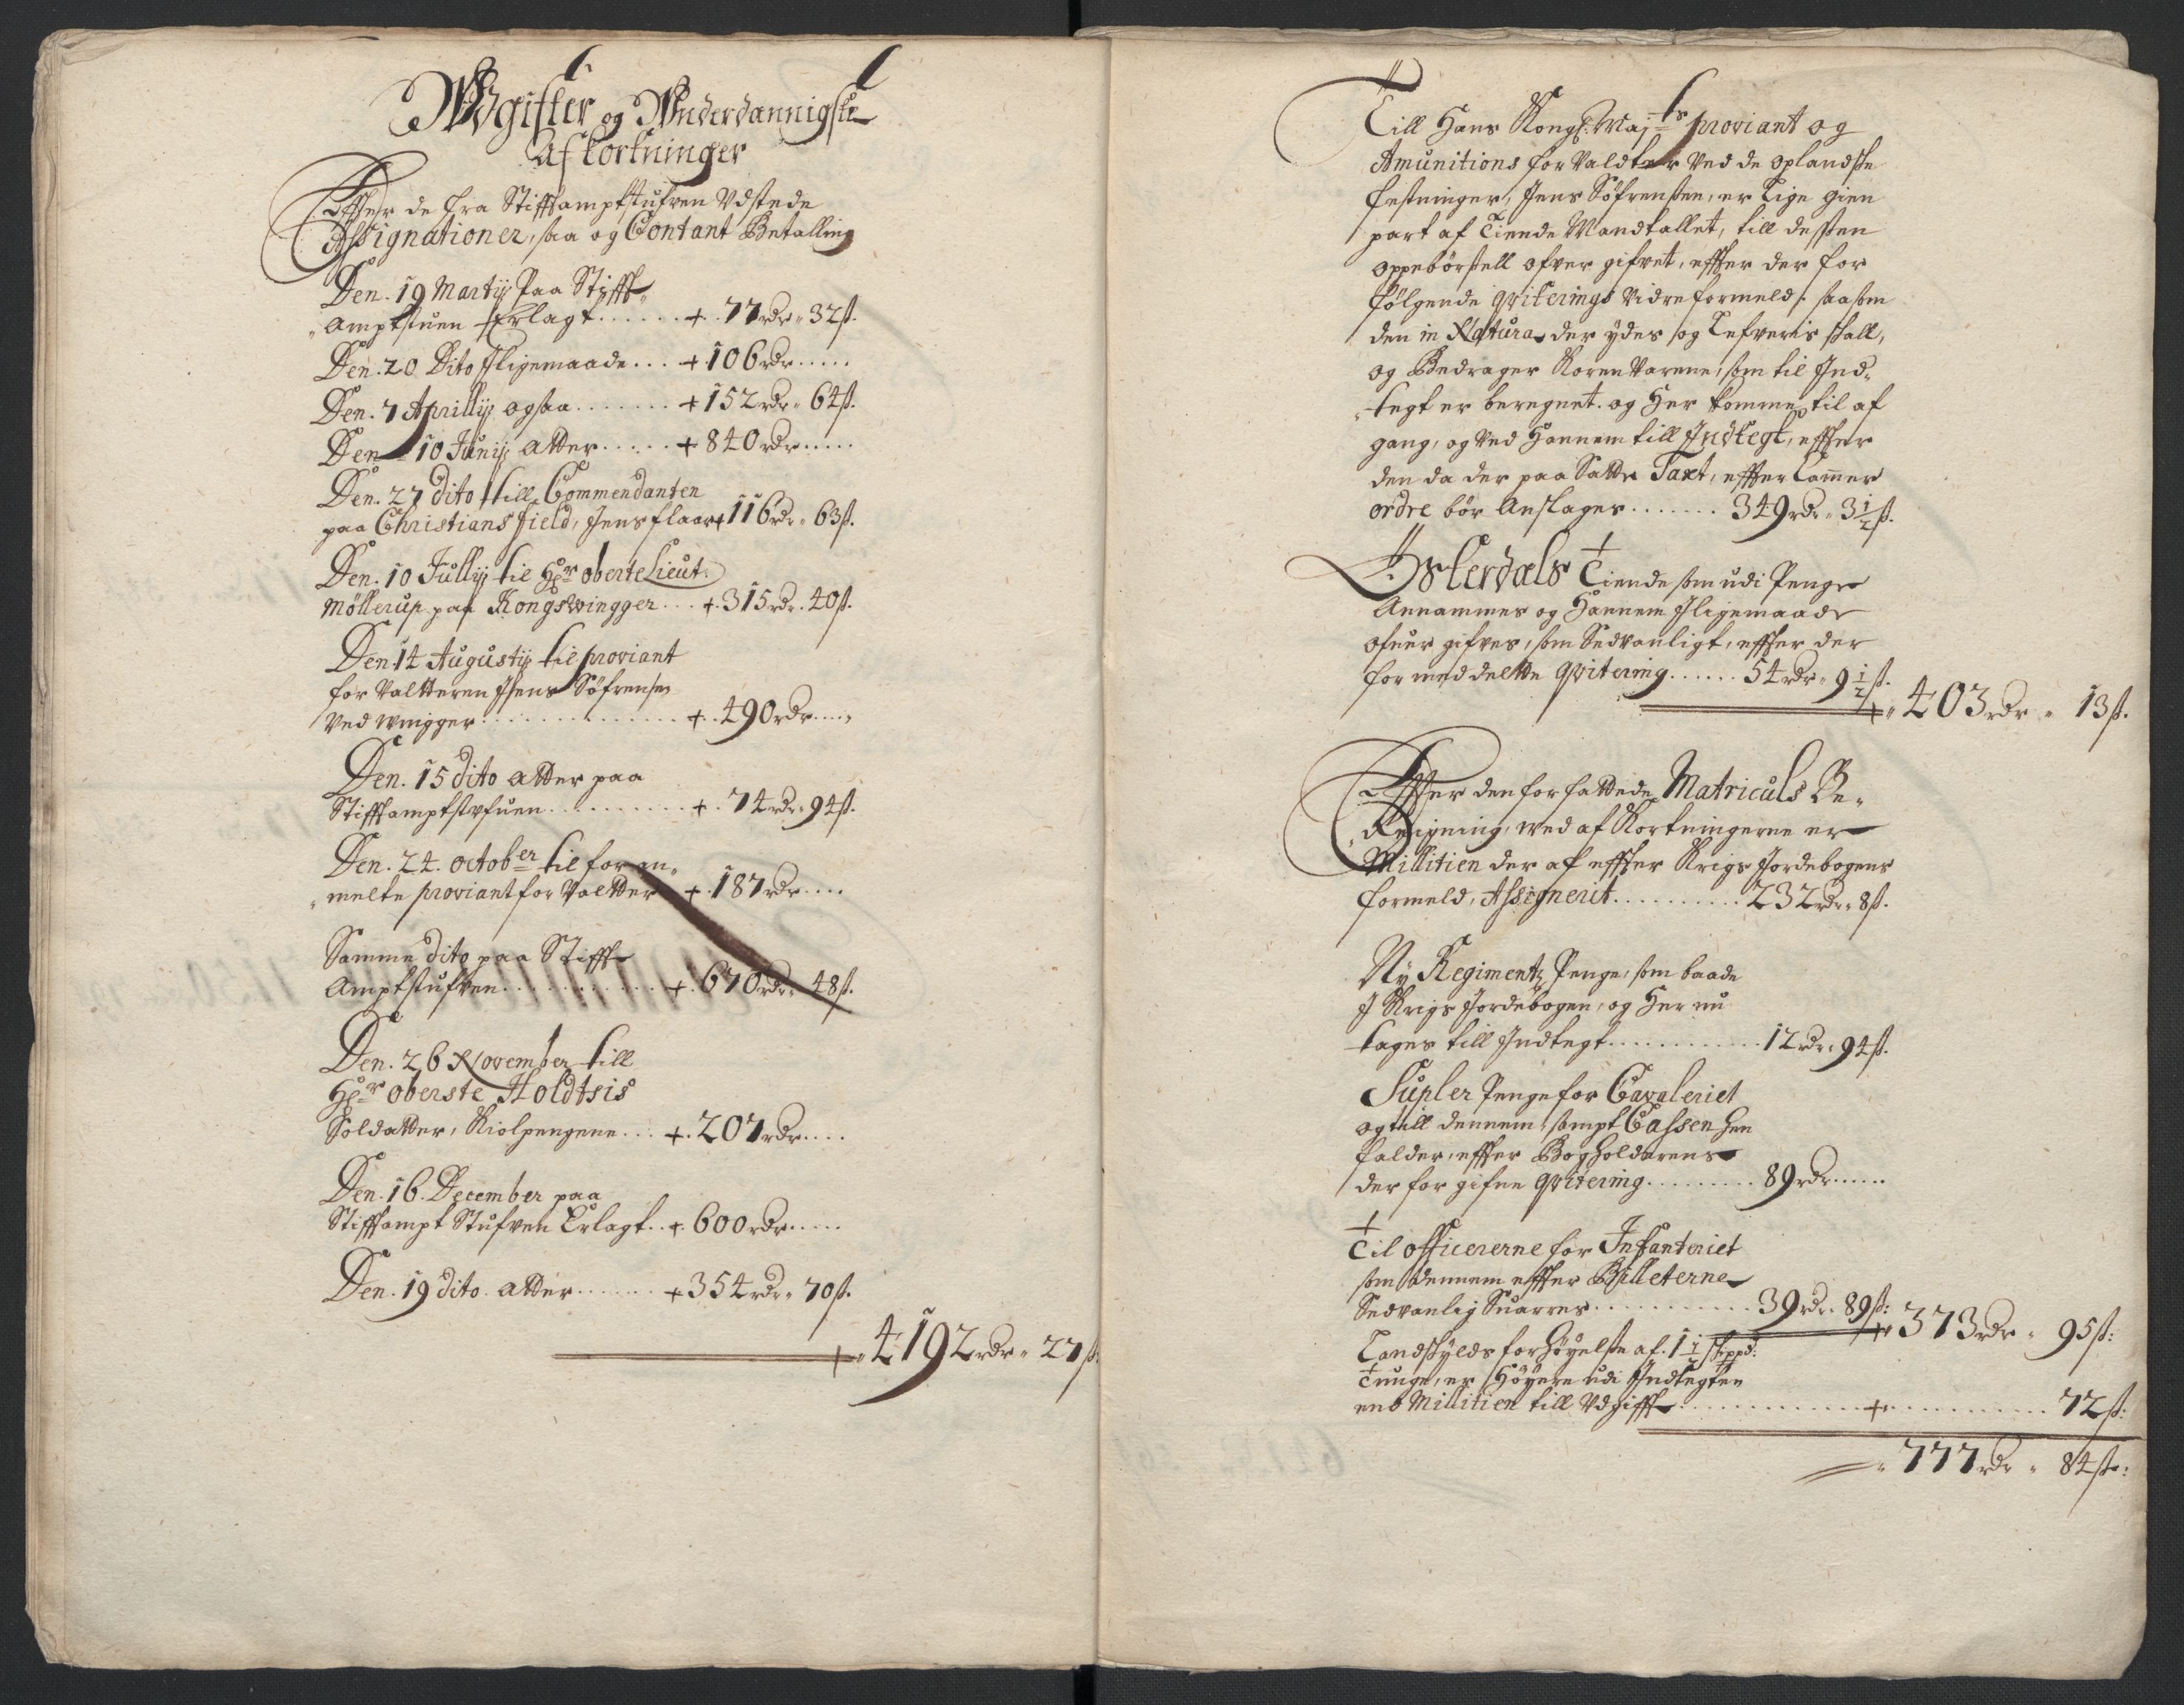 Wdgifter og Wnderdannigste
Afkortninger
Effter de fra Stifftamptstufven Vdstede
Assignationer, saa og Contant Betalling
Den. 19 Martij Paa Stifft-
Amptstuen Erlagt ...... + 77 rdr 32 ß.
Den. 20 Dito Jligemaade ... + 106 rdr .....
Den. 7 Aprillij ogsaa ....... + 152 rdr 64 ß.
Den 10 Junij atter ..... + 840 rdr .....
Den. 27 dito till Commendanten
paa Christiansfield, Jens flaar + 116 rdr 63 ß.
Den. 10 Jullij til Hr oberste Lieut:
Möllerup paa Kongswingger ... + 315 rdr. 40 ß.
Den 14 Augustij til proviant
for Valtteren Jens Söfrensen
Ved wingger .............. + 490 rdr ....
Den. 15 dito atter paa
Stifftamptstufuen .......... + 74 rdr 94 ß.
Den. 24. october til foran-
melte proviant for Valtter + 187 rdr ....
Samme dito paa Stifft
Amptstufven ............ + 670 rdr 48 ß.
Den. 26 November till
Hr oberste Holdtsis
Soldatter, Kiolpengene ... + 207 rdr ....
Den. 16. December paa
Stifftampt Stufven Erlagt .. + 600 rdr .....
Den. 19 dito atter ....... + 354 rdr 70 ß.
+ 4192 rdr 27 ß.
Till Hans Kongl. Maj:ts proviant og
Amunitions forvaldter Ved de oplandske
festninger, Jens Söfrensen, er Lige gien
part af Tiende Mandtallet, till dessen
oppebörsell ofver gifvet, effter der for
fölgende qviterings Vidre formeld, saasom
den in Natura der ydes og Lefveris skall,
og Bedrager Koren Varene, som til Ind-
tegt er beregnet. og Her kommer til af
gang, og Ved Hannem till Indtegt, effter
den da der paa Satte Taxt, effter Cammer
ordre bör Anslages ....... 349 rdr 3 1/2 ß.
Österdals Tiende som udi Penge
Annammes og Hannem Jligemaade
ofuer gifves, som Sedvanligt, effter der
for meddelte qvitering ...... 54 rdr 9 1/2 ß.
+ 403 rdr 13 ß.
Effter den forfattede Matriculs Be-
Regning, wed af Kortningerne er
Militien der af effter Krigs Jordebogens
formeld, Assignerit .......... 232 rdr 8 ß.
Ny Regimentz Penge, som baade
J Krigs Jordebogen, og Her nu
tages till Indtegt ............ 12 rdr 94 ß.
Supler Penge for Cavaleriet
og till dennem sampt Cassen Hen
falder, effter Bogholderens
der for gifne qvitering ......... 89 rdr ......
Til officererne for Infanteriet
som dennem effter Billeterne
Sedvanlig Suarres ........... 39 rdr. 89 ß:
+ 373 rdr 95 ß:
Landskylds forhöyelse af. 1 1/2 skppd:
Tunge, er Höyere udi Indtegten
end Militien till Vdgifft ............ + ............ 72 ß:
777 rdr 84 ß: